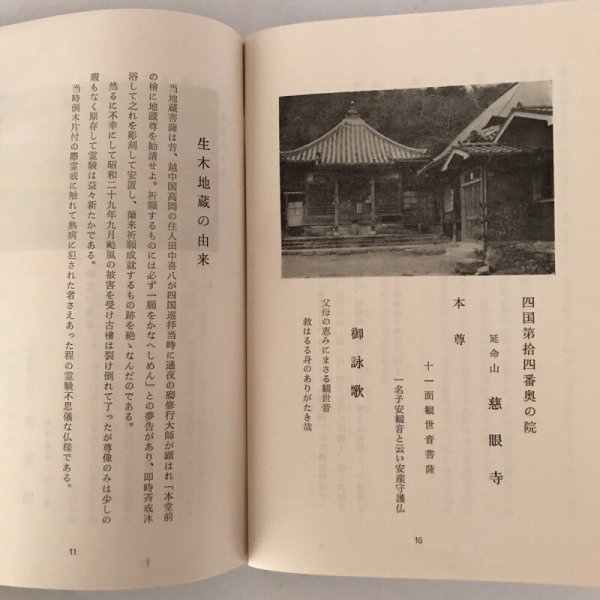 四国第拾四番奥の院
延命山 慈眼寺
本尊
十一面観世音菩薩
一名子安観音と云い安産守護仏
御詠歌
父母の恵みにまさる観世音
救はるる身のありがたき哉
10
生木地蔵の由来
当地蔵菩薩は昔、越中国高岡の住人田中喜八が四国巡拝当時に通夜の砌修行大師が顕はれ「本堂前
の檜に地蔵尊を勧請せよ。祈願するものには必ず一願をかなへしめん」との夢告があり、即時斉戒沐
浴して之れを彫刻して安置し、爾来祈願成就するもの跡を絶ゝなんだのである。
然るに不幸にして昭和二十九年九月颱風の被害を受け古檜は裂け倒れて了ったが尊像のみは少しの
瑕もなく原存して霊験は益々新たかである。
当時倒木片付の際霊威に触れて熱病に犯された者さえあった程の霊験不思儀な仏様である。
11